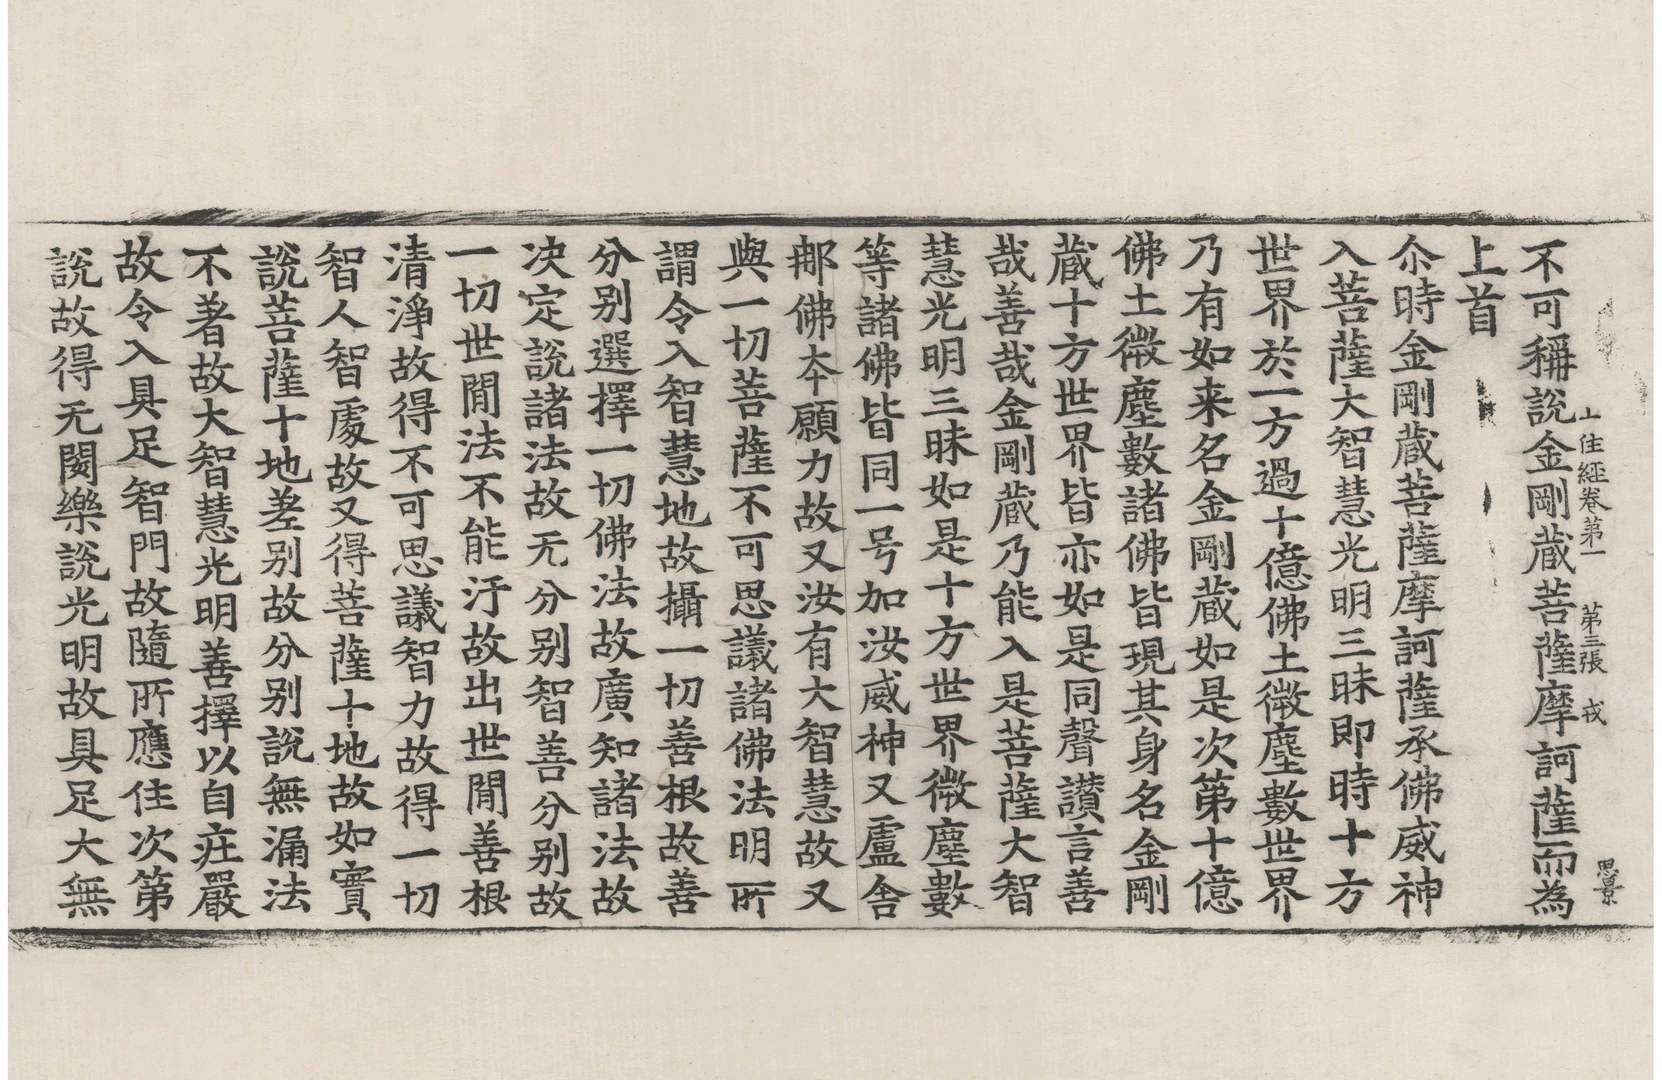 不可稱說金剛蔵菩薩摩訶薩而為
上首
尒時金剛蔵菩薩摩訶薩承佛威神
入菩薩大智慧光明三昧即時十方
世界於一方過十億佛土微塵數世界
乃有如来名金剛蔵如是次第十億
佛土微塵數諸佛皆現其身名金剛
蔵十方世界皆亦如是同聲讃言善
哉善哉金剛蔵乃能入是菩薩大智
慧光明三昧如是十方世界微塵數
等諸佛皆同一号加汝威神又盧舍
那佛夲願力故又汝有大智慧故又
與一切菩薩不可思議諸佛法明所
謂令入智慧地故攝一切善根故善
分别選擇一切佛法故廣知諸法故
决定說諸法故无分别智善分别故
一切世閒法不能汙故出世閒善根
清淨故得不可思議智力故得一切
智人智處故又得菩薩十地故如實
說菩薩十地差别故分别說無漏法
不著故大智慧光明善擇以自庄嚴
故令入具足智門故隨所應住次第
說故得无閡樂說光明故具足大無
住經卷第一 第三張 戎
思景